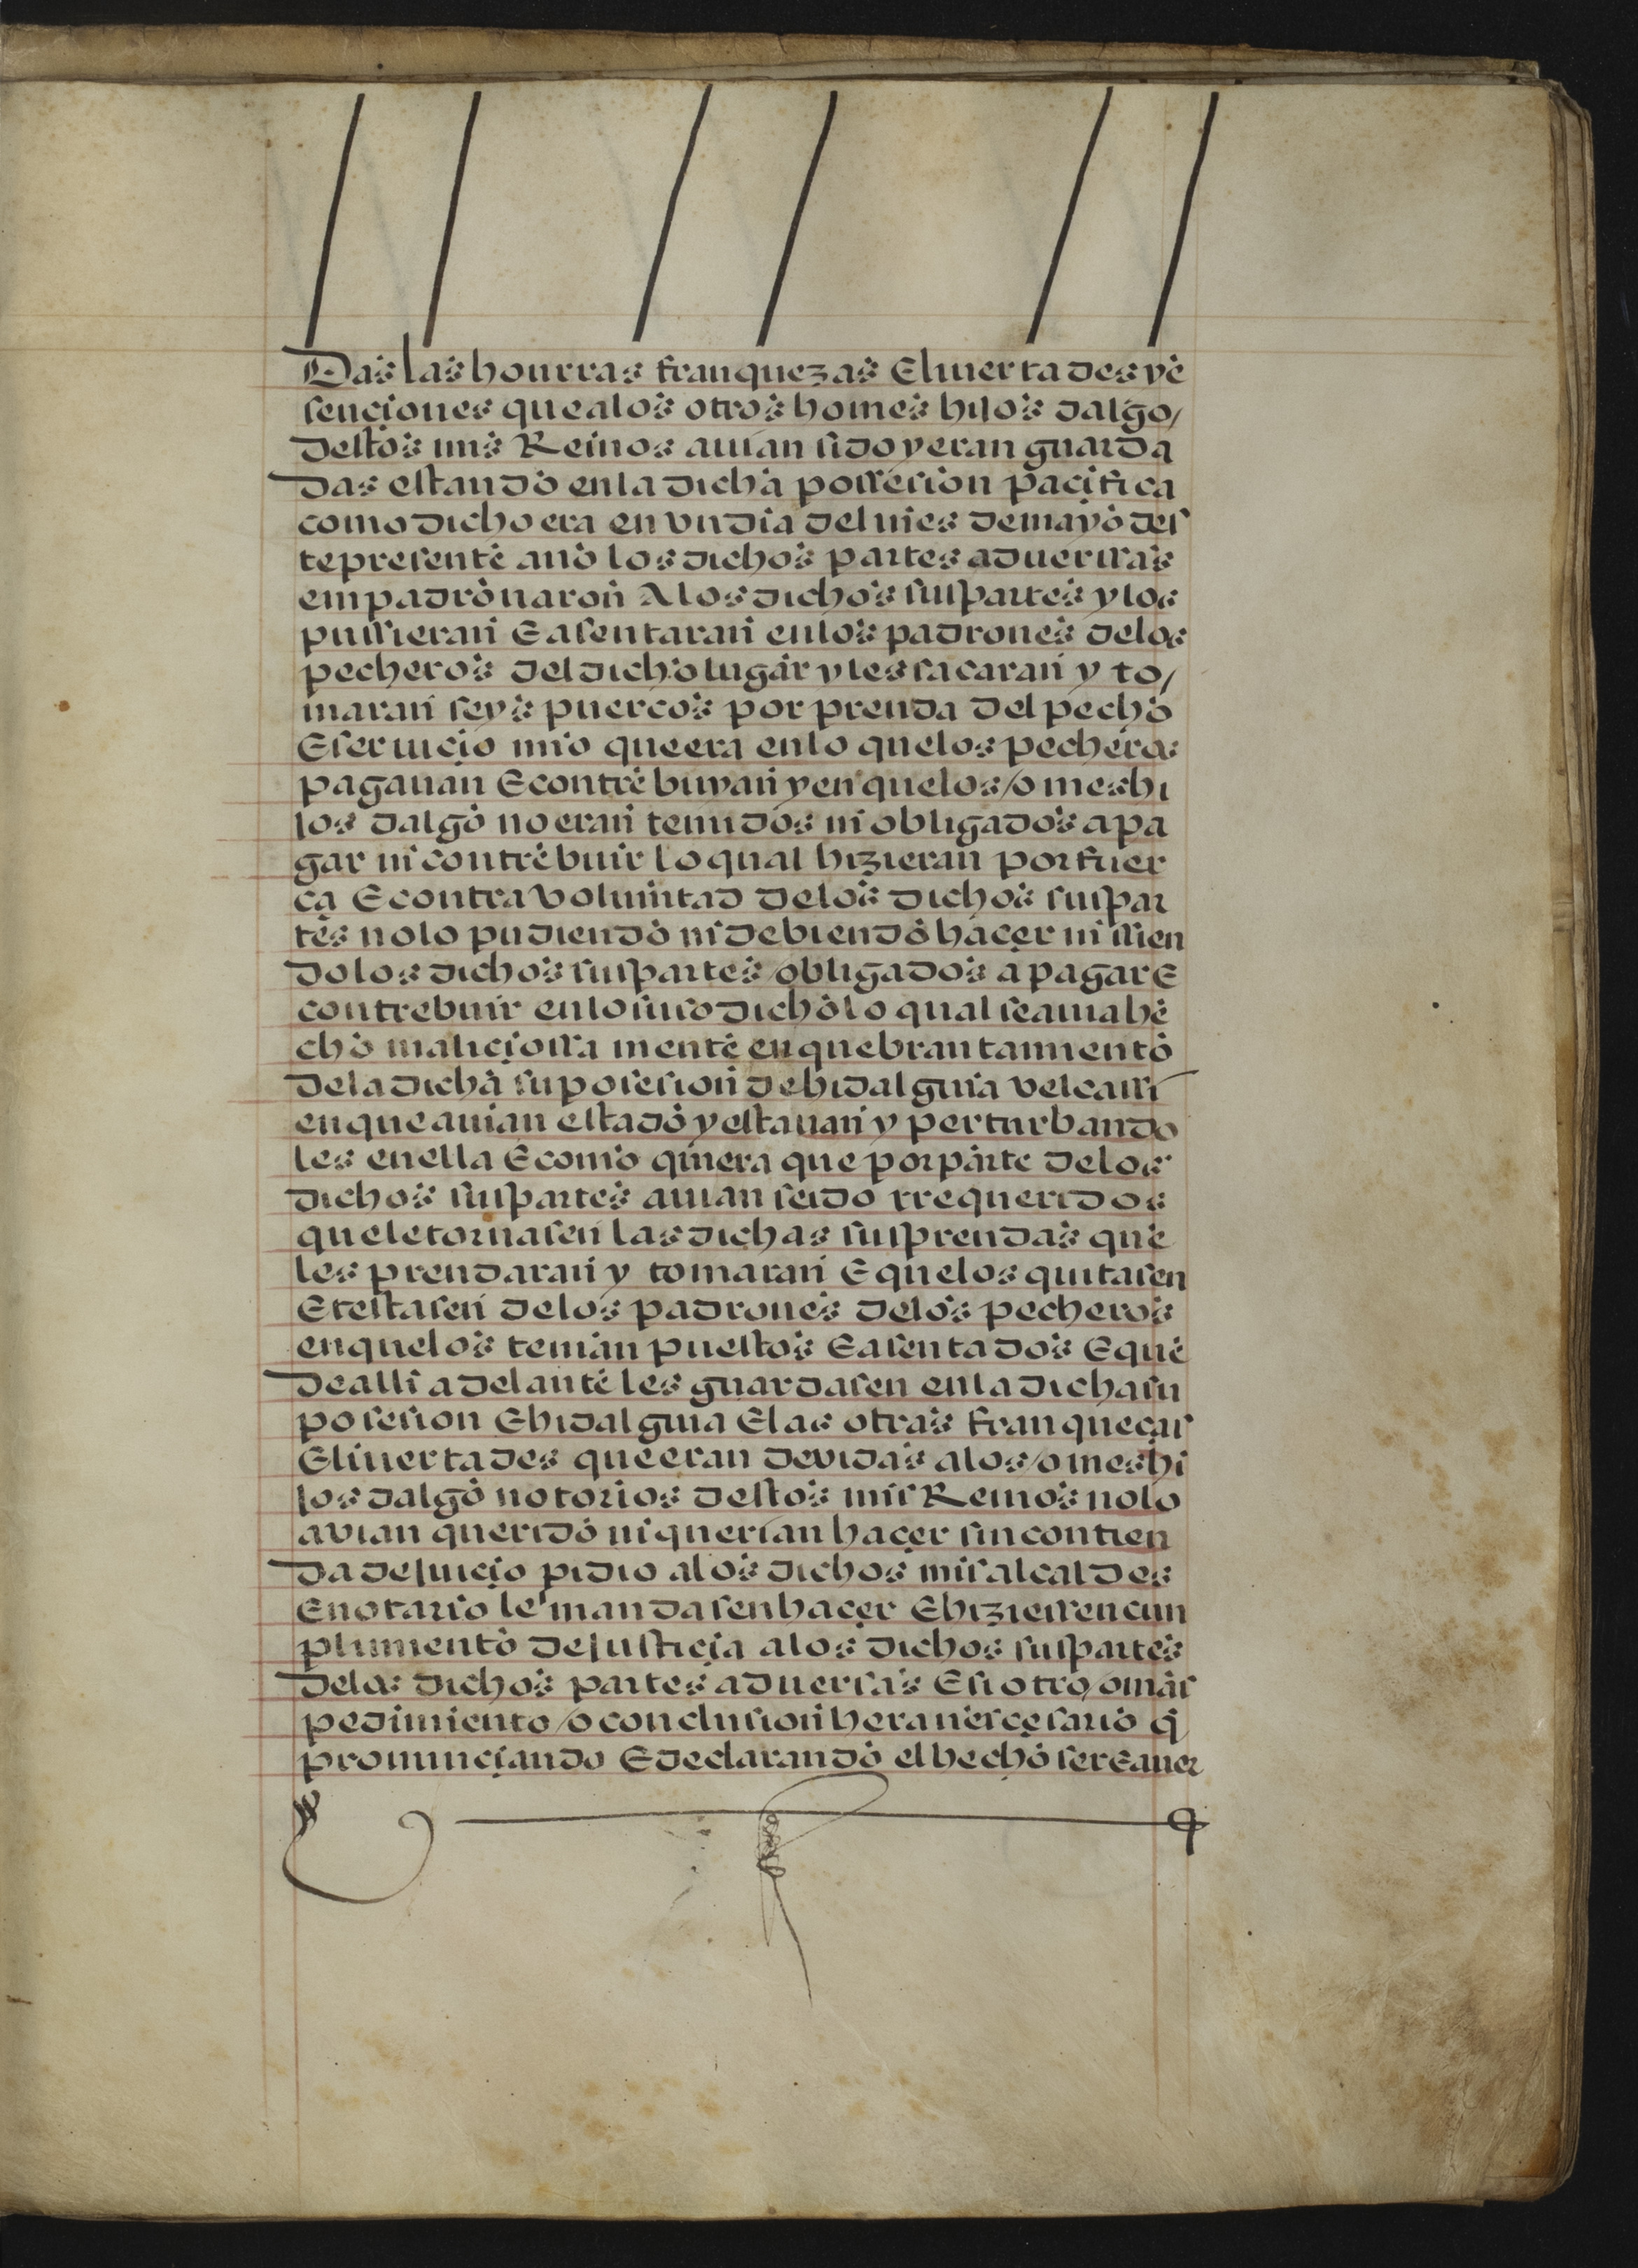 Das las honrras franquezas E livertades y e
senciones que a los otros homes hijos dalgo /
destos mis Reinos avian sido y eran guarda
das estando en la dicha possesion pacifica
como dicho era en vn dia del mes de mayo des
te presente año los dichos partes aduerssas
empadronaron A los dichos sus partes y los
pussieran E asentaran en los padrones de los
pecheros del dicho lugar y les sacaran y to /
maran seys puercos por prenda del pecho
E seruicio mio que era en lo que los pecheros
pagauan E contrebuyan y en que los / omes hi
jos dalgo no eran tenudos ni obligados a pa
gar ni contrebuir lo qual hizieran por fuer
ça E contra voluntad de los dichos sus par
tes no lo pudiendo ni debiendo haçer ni sien
do los dichos sus partes / obligados a pagar E
contrebuir en lo suso dicho lo qual se avia he
cho maliciossa mente en quebrantamiento
de la dicha su posesion de hidalguia vel cassi
en que auian estado y estauan y perturbando
les en ella E como quiera que por parte de los
dichos sus partes auian seido rrequeridos
que le tornasen las dichas sus prendas que
les prendaran y tomaran E que los quitasen
E testasen de los padrones de los pecheros
en que los tenian puestos E asentados E que
de alli adelante les guardasen en la dicha su
posesion E hidalguia E las otras franqueças
E livertades que eran devidas a los / omes hi
jos dalgo notorios destos mis Reinos no lo
avian querido ni querian haçer sin contien
da de juicio pidio a los dichos mis alcaldes
E notario le mandasen haçer E hiziessen cun
plimiento de justicia a los dichos sus partes
de los dichos partes aduersas E si otro / o mas
pedimiento / o conclusion hera nescesario q̃
pronunciando E declarando el hecho ser E aver